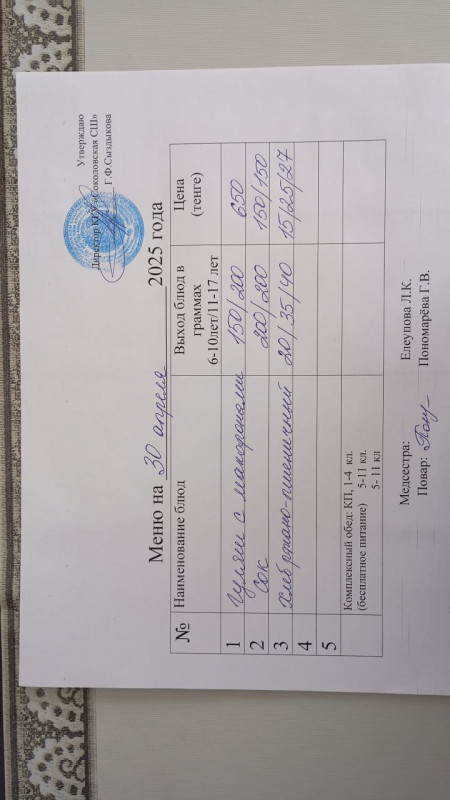 Утверждаю
Директор КГУ «Соколовская СШ»
Г.Ф.Сыздыкова
Меню на 30 апреля 2025 года
№ Наименование блюд Выход блюд в граммах 6-10лет/11-17 лет Цена (тенге)
1 Гуляш с макаронами 150/200 650
2 Сок 200/200 150/150
3 Хлеб ржано-пшеничный 20/35/40 15/25/27
4
5
Комплексный обед: КП, 1-4 кл.
(бесплатное питание) 5-11 кл.
5- 11 кл
Медсестра: Елеупова Л.К.
Повар: Пономарёва Г.В.